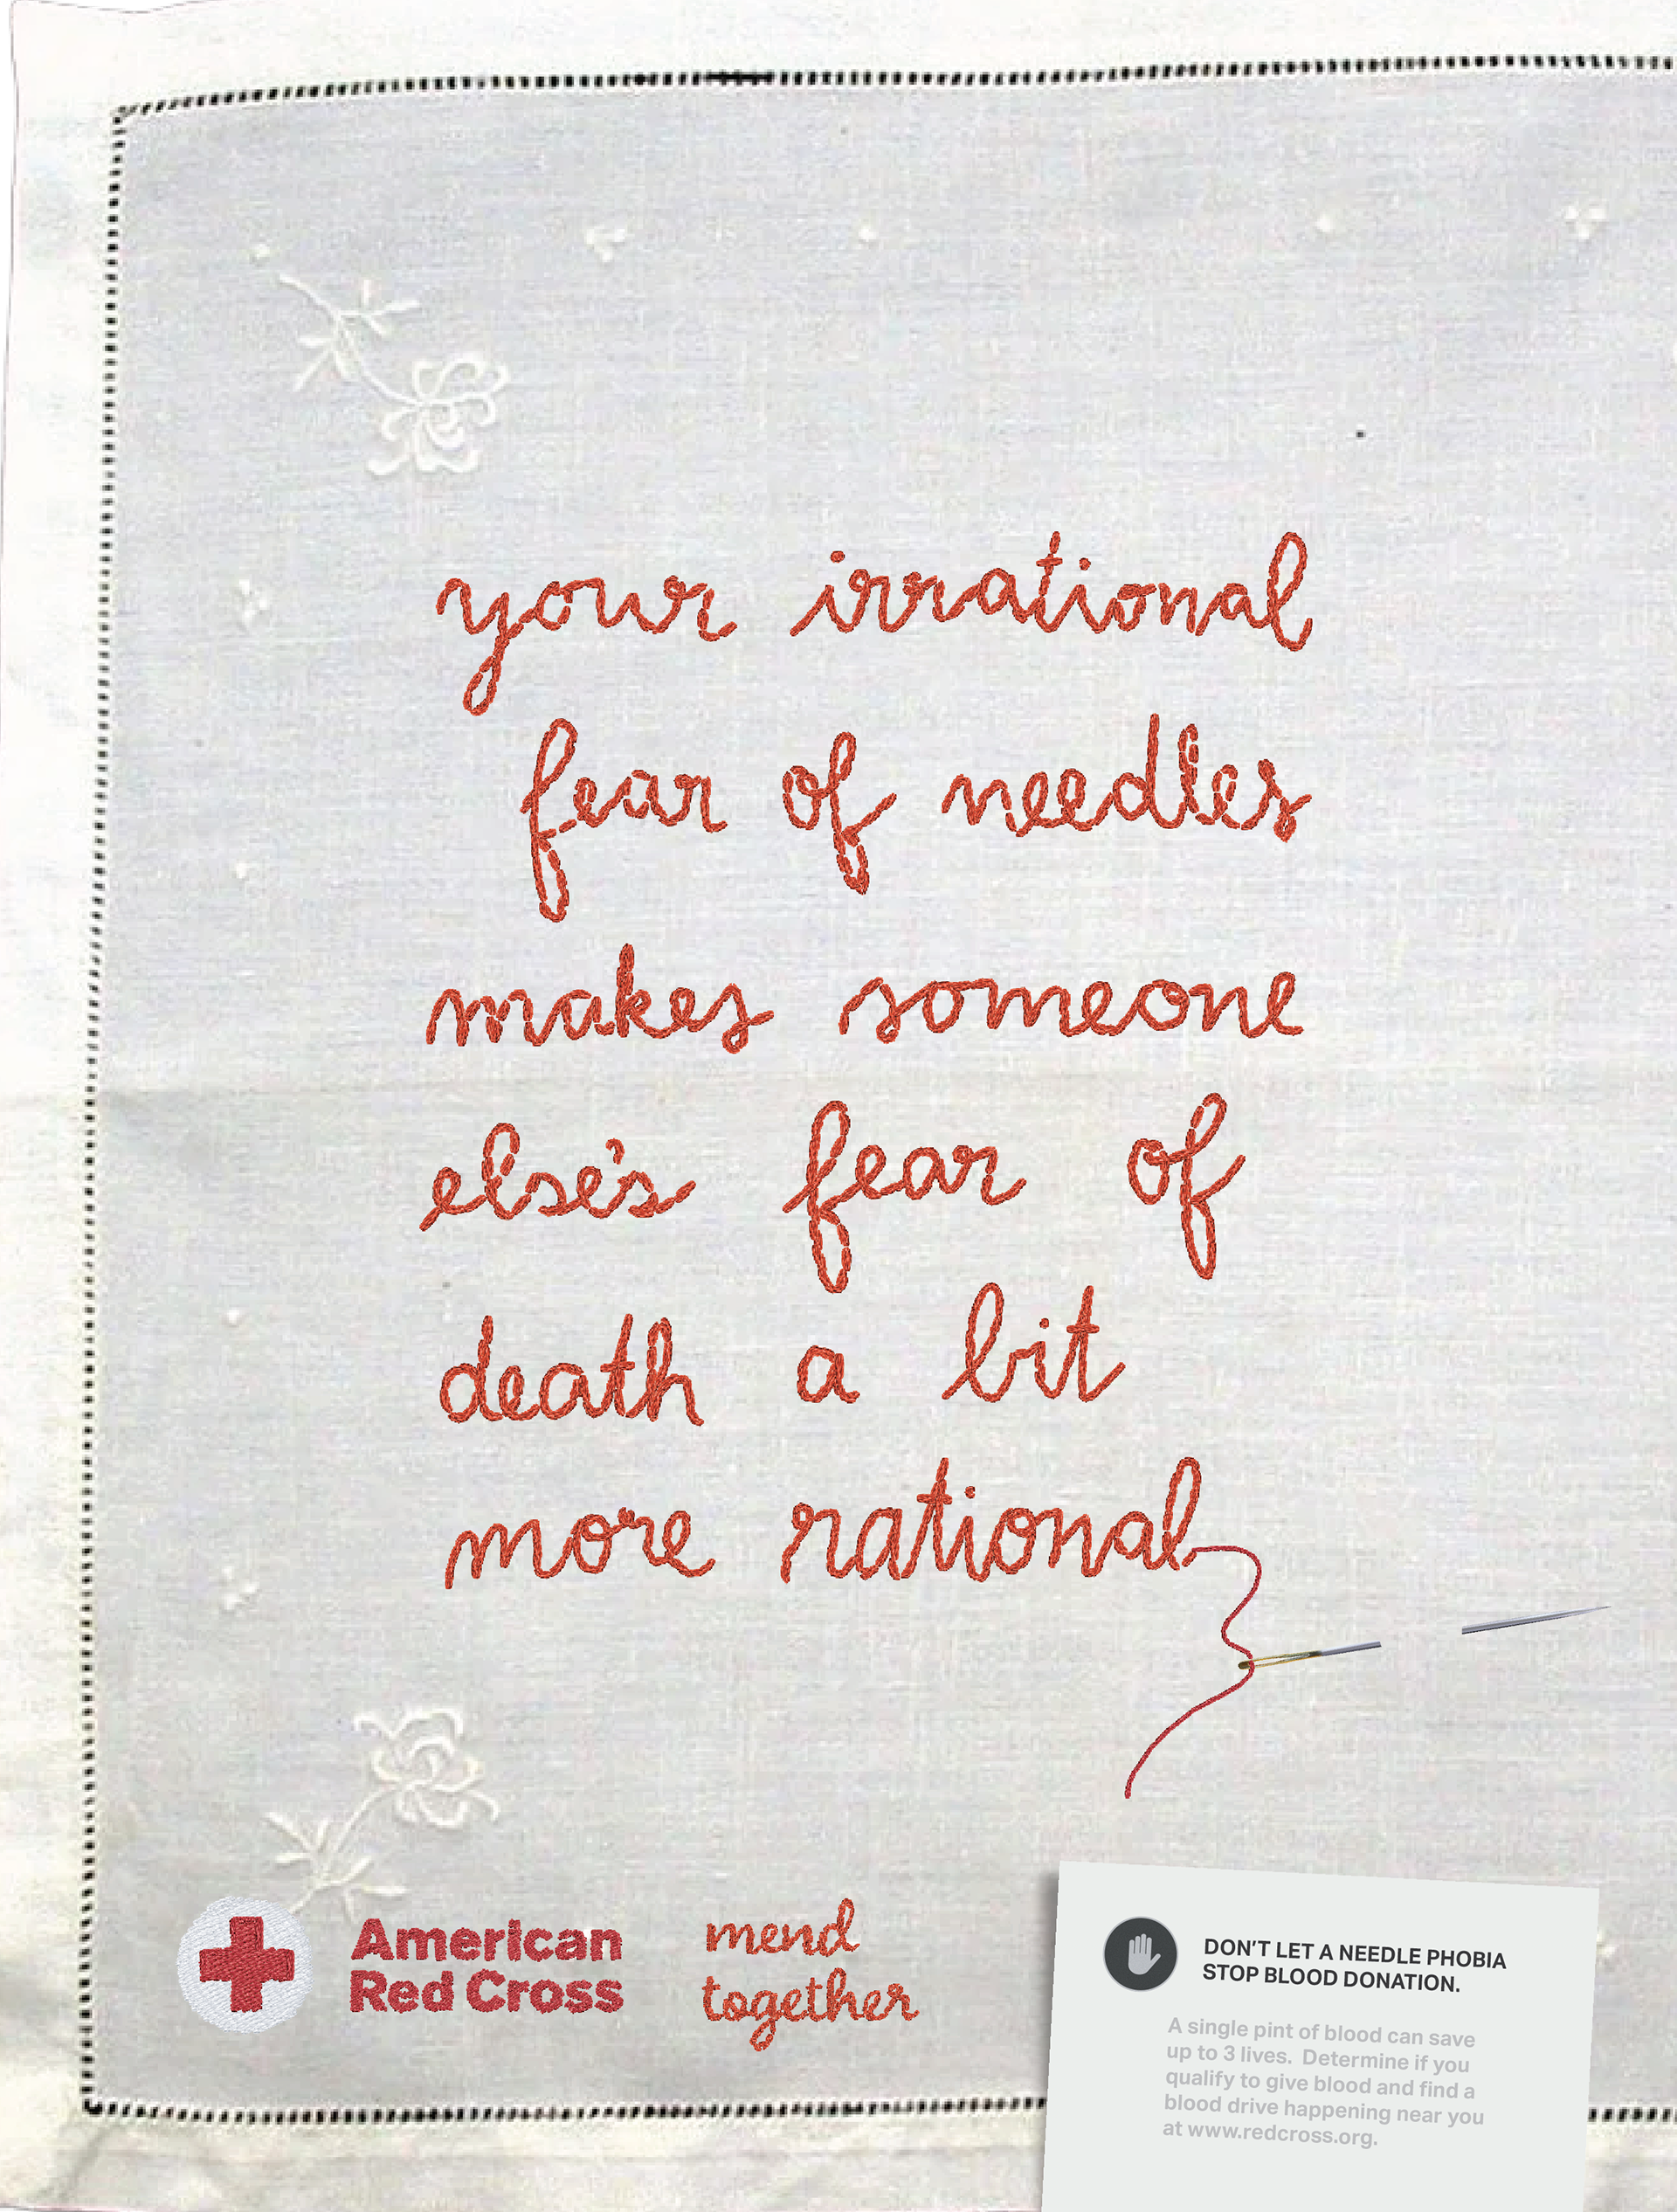 your irrational
fear of needles
makes someone
else's fear of
death a bit
more rational
American
Red Cross
mend
together
DON'T LET A NEEDLE PHOBIA
STOP BLOOD DONATION.
A single pint of blood can save
up to 3 lives. Determine if you
qualify to give blood and find a
blood drive happening near you
at www.redcross.org.